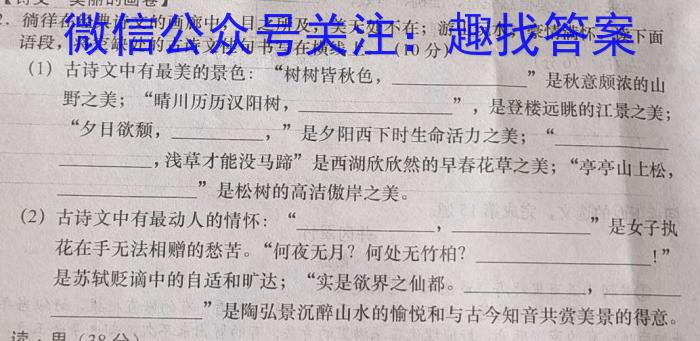 【诗文·美丽的画卷】
微信公众号关注：趣找答案
2. 徜徉在 诗文的画廊中，目之所及，美无处不在；游
语段， （10分）
(1) 古诗文中有最美的景色：“树树皆秋色，__________”是秋意颇浓的山
野之美；“晴川历历汉阳树，__________”，是登楼远眺的江景之美；
“夕日欲颓，__________，”是夕阳西下时生命活力之美；“__________
__________，浅草才能没马蹄”是西湖欣欣然的早春花草之美；“亭亭山上松，
__________”是松树的高洁傲岸之美。
(2) 古诗文中有最动人的情怀：“__________，__________”是女子执
花在手无法相赠的愁苦。“何夜无月？何处无竹柏？__________！”
是苏轼贬谪中的自适和旷达；“实是欲界之仙都。__________，
__________”是陶弘景沉醉山水的愉悦和与古今知音共赏美景的得意。